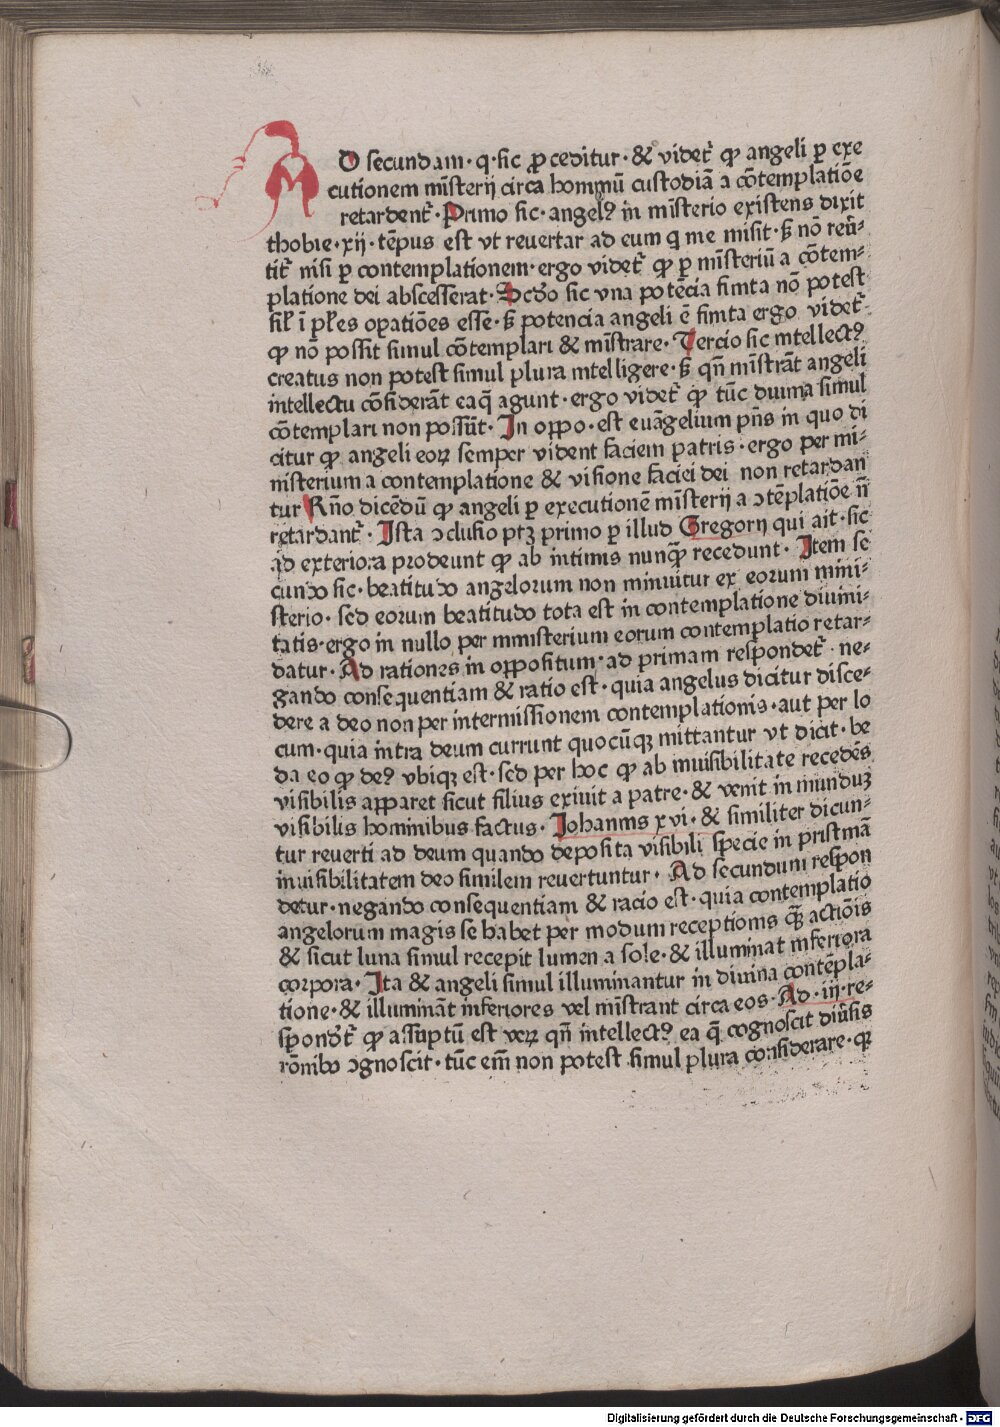 AD secundam · q · sic ꝓceditur · & videt᷑ ꝙ angeli ꝑ exe
cutionem mīsterij circa hominū custodiā a cōtemplatiōe
retardent᷑ · Primo sic · angelꝰ in mīsterio existens dixit
thobie · xij · tēpus est vt reuertar ad eum q me misit · ß nō reūˀ⸗
tit᷑ nisi ꝑ contemplationem · ergo videt᷑ ꝙ ꝑ mīsteriū a cōtem⸗
platione dei abscesserat · Scd̄o sic vna potēcia finita nō potest
sil̓ ī pl̓es oꝑatiōes esse · ß potencia angeli ē finita ergo videt᷑
ꝙ nō possit simul cōtemplari & mīstrare · Tercio sic intellectꝰ
creatus non potest simul plura intelligere · ß qn̄ mīstrāt angeli
intellectu cōsiderāt ea q̄ agunt · ergo videt᷑ ꝙ tūc diuina simul
cōtemplari non possūt · In oppo · est euāgelium pn̄s in quo di
citur ꝙ angeli eoꝝ semper vident faciem patris · ergo per mi⸗
nisterium a contemplatione & visione faciei dei non retardan
tur Rn̄o dicēdū ꝙ angeli ꝑ executionē mīsterij a ↄtēplatiōe n̄
retardant᷑ · Ista ↄclusio ptꝫ primo ꝑ illud Gregorij qui ait · sic
ad exteriora prodeunt ꝙ ab intimis nunqͣꝫ recedunt · Item se
cundo sic · beatitudo angelorum non minuitur ex eorum mini⸗
sterio · sed eorum beatitudo tota est in contemplatione diuini⸗
tatis · ergo in nullo per ministerium eorum contemplatio retar⸗
datur · Ad rationes in oppositum · ad primam respondet᷑ · ne⸗
gando consequentiam & ratio est · quia angelus dicitur disce⸗
dere a deo non per intermissionem contemplationis · aut per lo
cum · quia intra deum currunt quocūqꝫ mittantur vt dicit · be
da eo ꝙ deꝰ vbiqꝫ est · sed per hoc ꝙ ab inuisibilitate recedēs
visibilis apparet sicut filius exiuit a patre · & venit in munduꝫ
visibilis hominibus factus · Iohannis xvi · & similiter dicun⸗
tur reuerti ad deum quando deposita visibili specie in pristinā
inuisibilitatem deo similem reuertuntur · Ad secundum respon
detur · negando consequentiam & racio est · quia contemplatio
angelorum magis se habet per modum receptionis qͣꝫ actiōis
& sicut luna simul recepit lumen a sole · & illuminat inferiora
corpora · Ita & angeli simul illuminantur in diuina contēpla⸗
tione · & illumināt inferiores vel mīstrant circa eos · Ad · iij · re⸗
spondet᷑ ꝙ assūptū est veꝝ qn̄ intellectꝰ ea q̄ cognoscit diūˀsis
rōnibꝰ ↄgnoscit · tūc em̄ non potest simul plura considerare · qꝛ
Digitalisierung gefördert durch die Deutsche Forschungsgemeinschaft · DFG